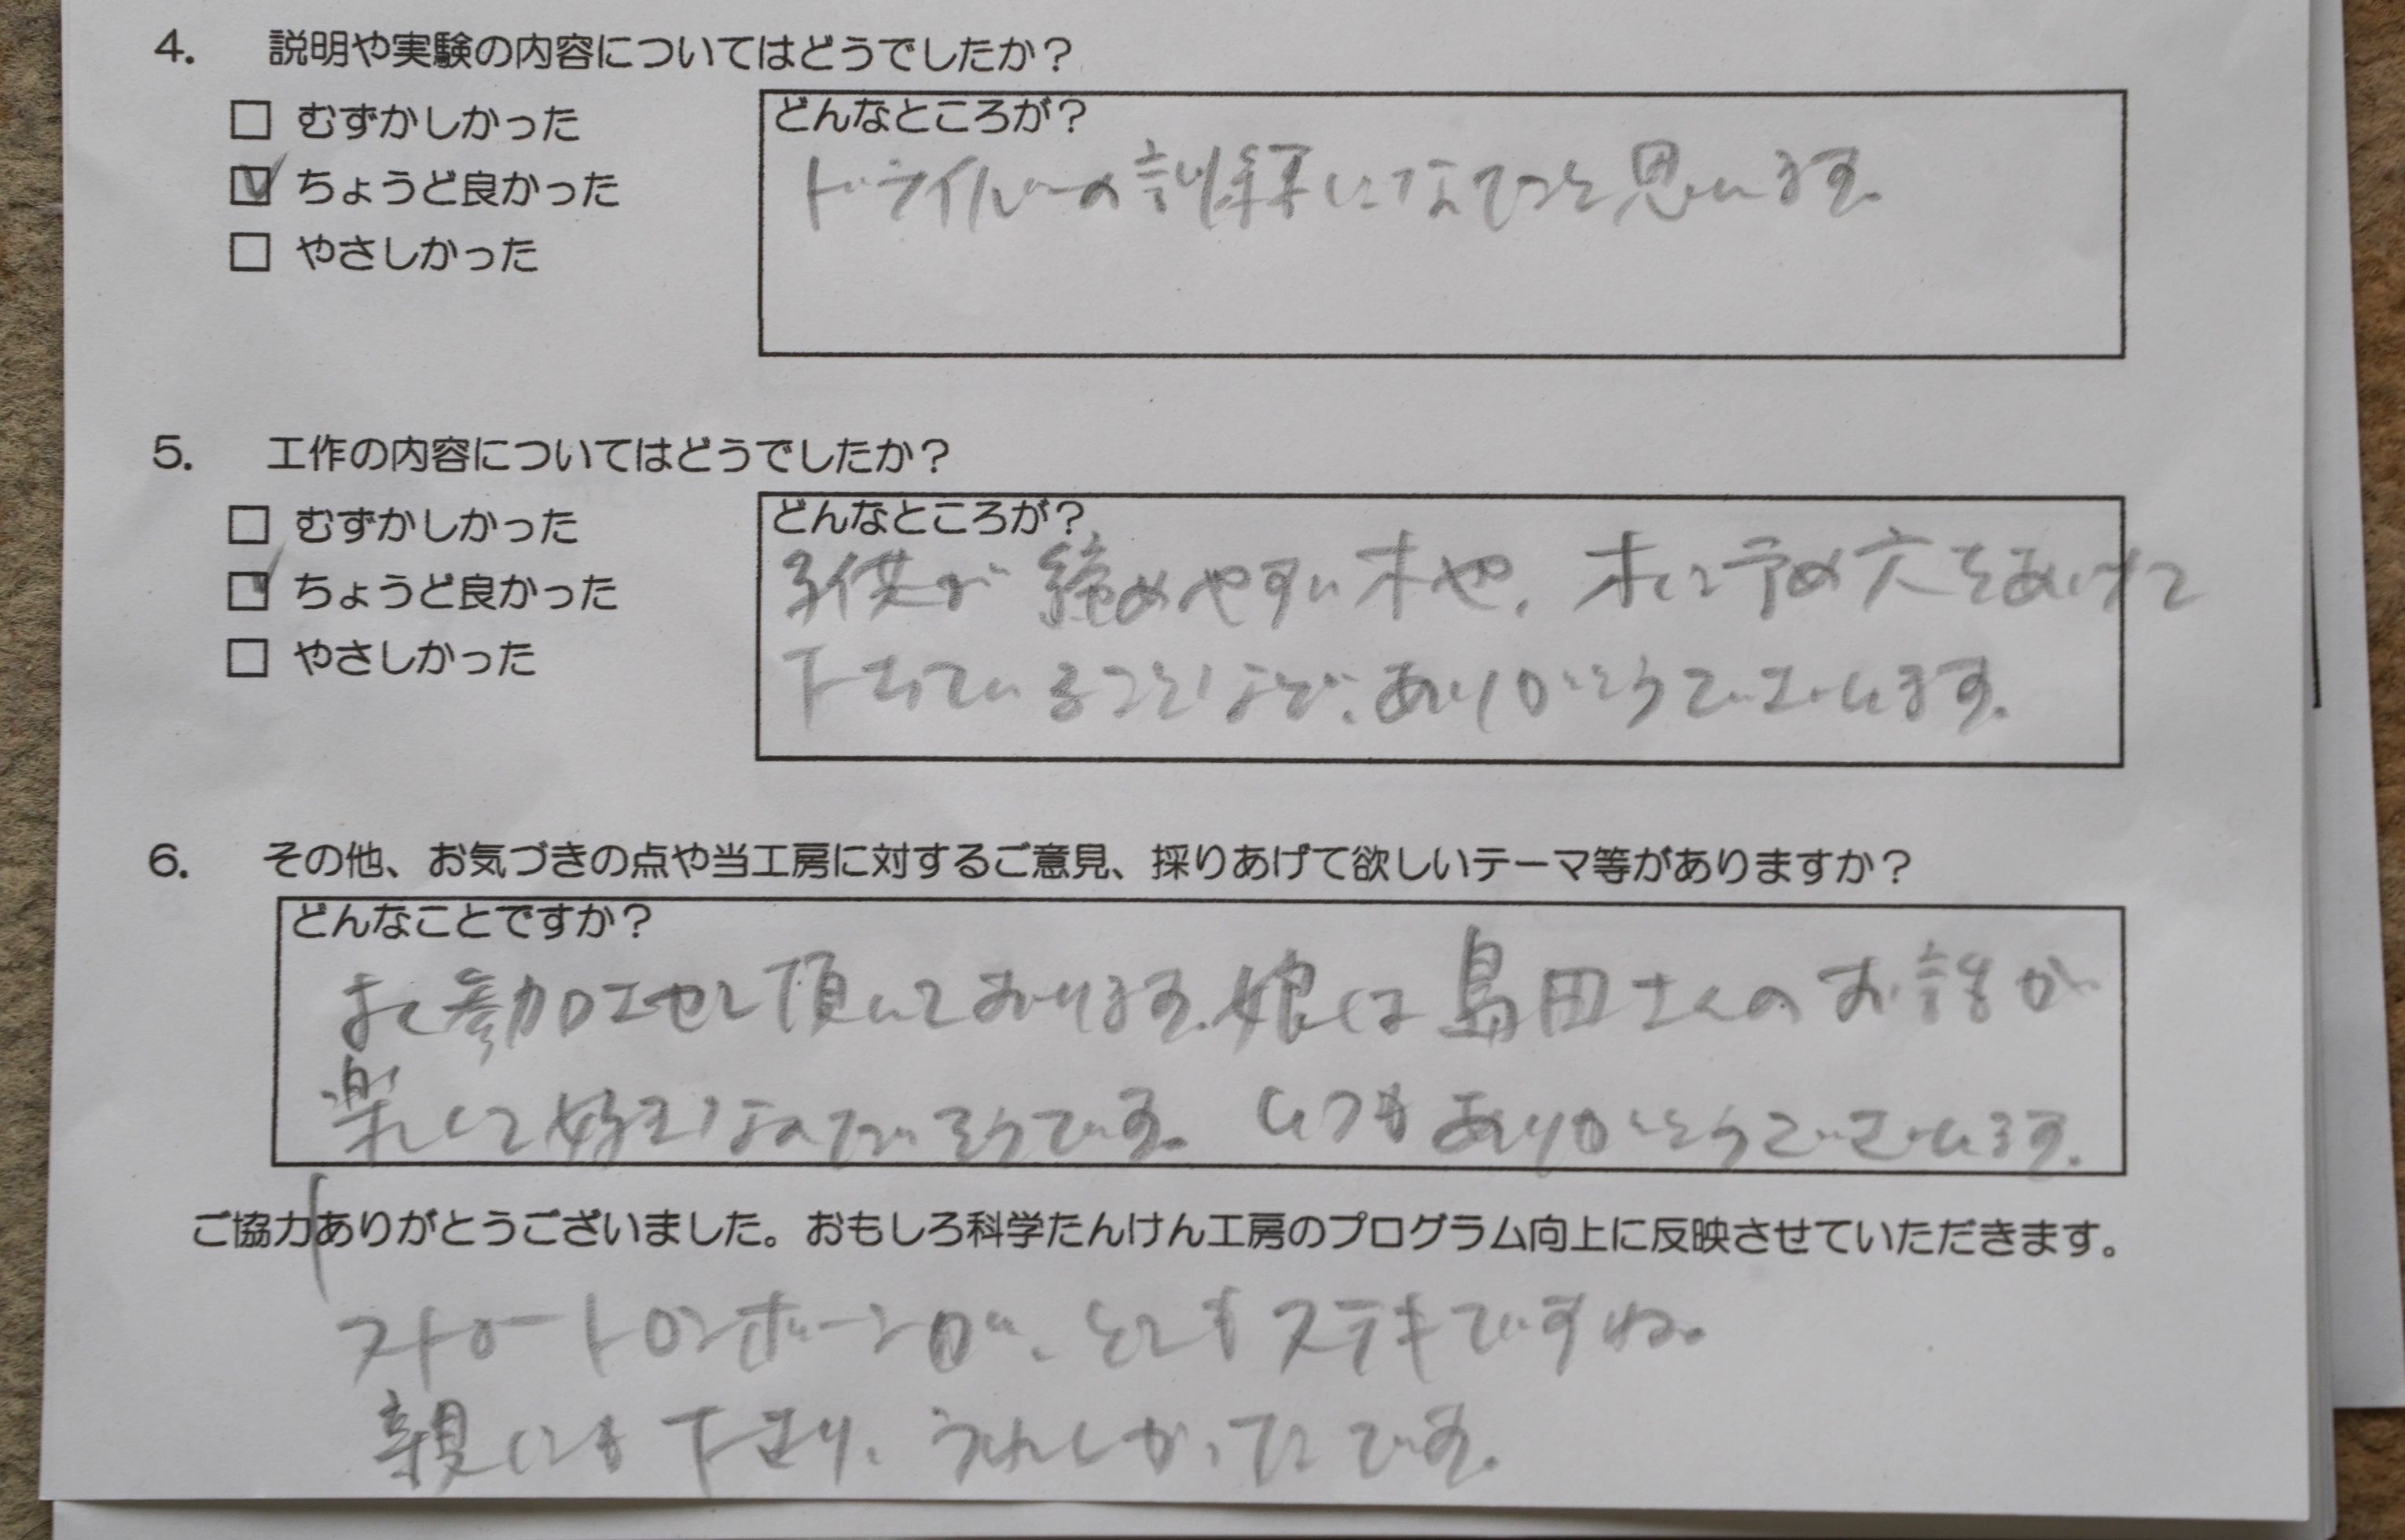 4. 説明や実験の内容についてはどうでしたか？
□ むずかしかった
☑ ちょうど良かった
□ やさしかった
どんなところが？
ドライバーの訓練になったと思います。
5. 工作の内容についてはどうでしたか？
□ むずかしかった
☑ ちょうど良かった
□ やさしかった
どんなところが？
子供が締めやすい木や、木に予め穴をあけて
下さっていることなど、ありがとうございます。
6. その他、お気づきの点や当工房に対するご意見、採りあげて欲しいテーマ等がありますか？
どんなことですか？
よく参加させて頂いております。娘は島田さんのお話が
楽しくて好きなのだそうです。いつもありがとうございます。
ご協力ありがとうございました。おもしろ科学たんけん工房のプログラム向上に反映させていただきます。
ストロートロンボーンが、とてもステキですね。
親にも下さり、うれしかったです。